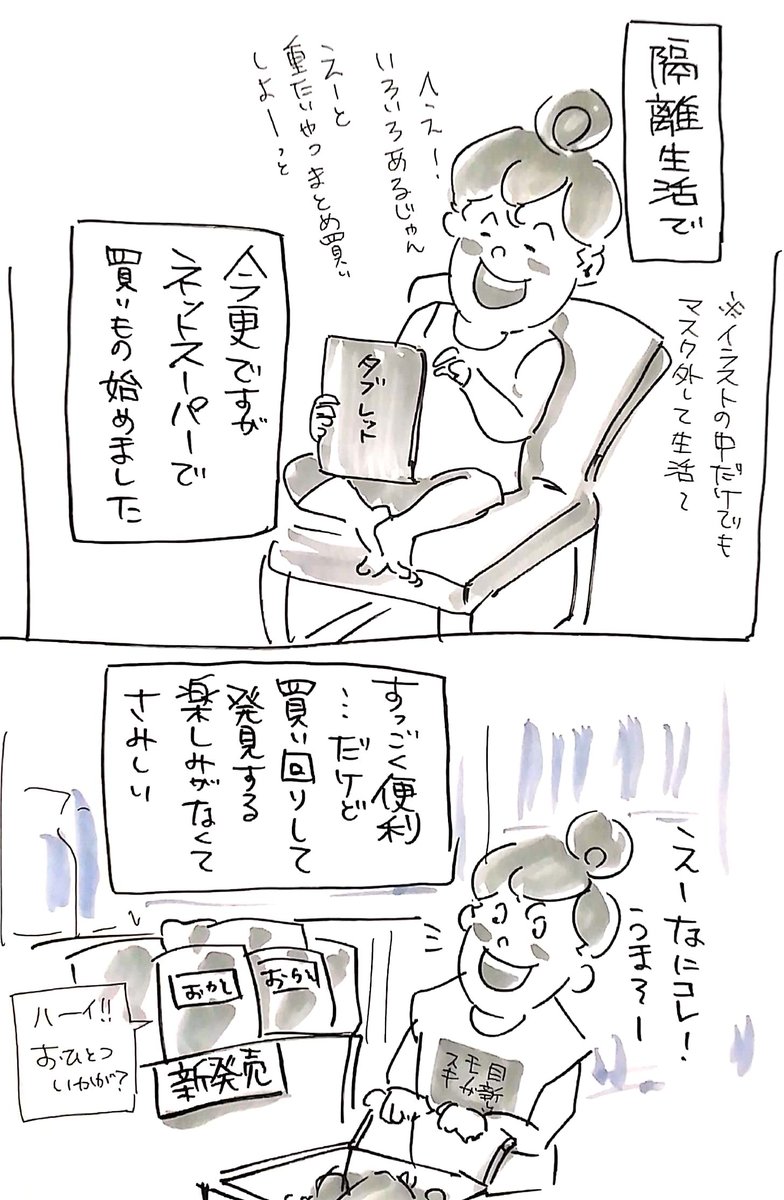 隔離生活で
※イラストの中だけでも
マスク外して生活～
へえー!
いろいろあるじゃん
えーと
重たいやつまとめ買い
しよーっと
タブレット
今更ですが
ネットスーパーで
買いもの始めました
すっごく便利
…だけど
買い回りして
発見する
楽しみがなくて
さみしい
えーなにコレ!
うまそー
目新し
モノが
スキ
おかし
おかし
新発売
ハーイ!!
おひとつ
いかが?